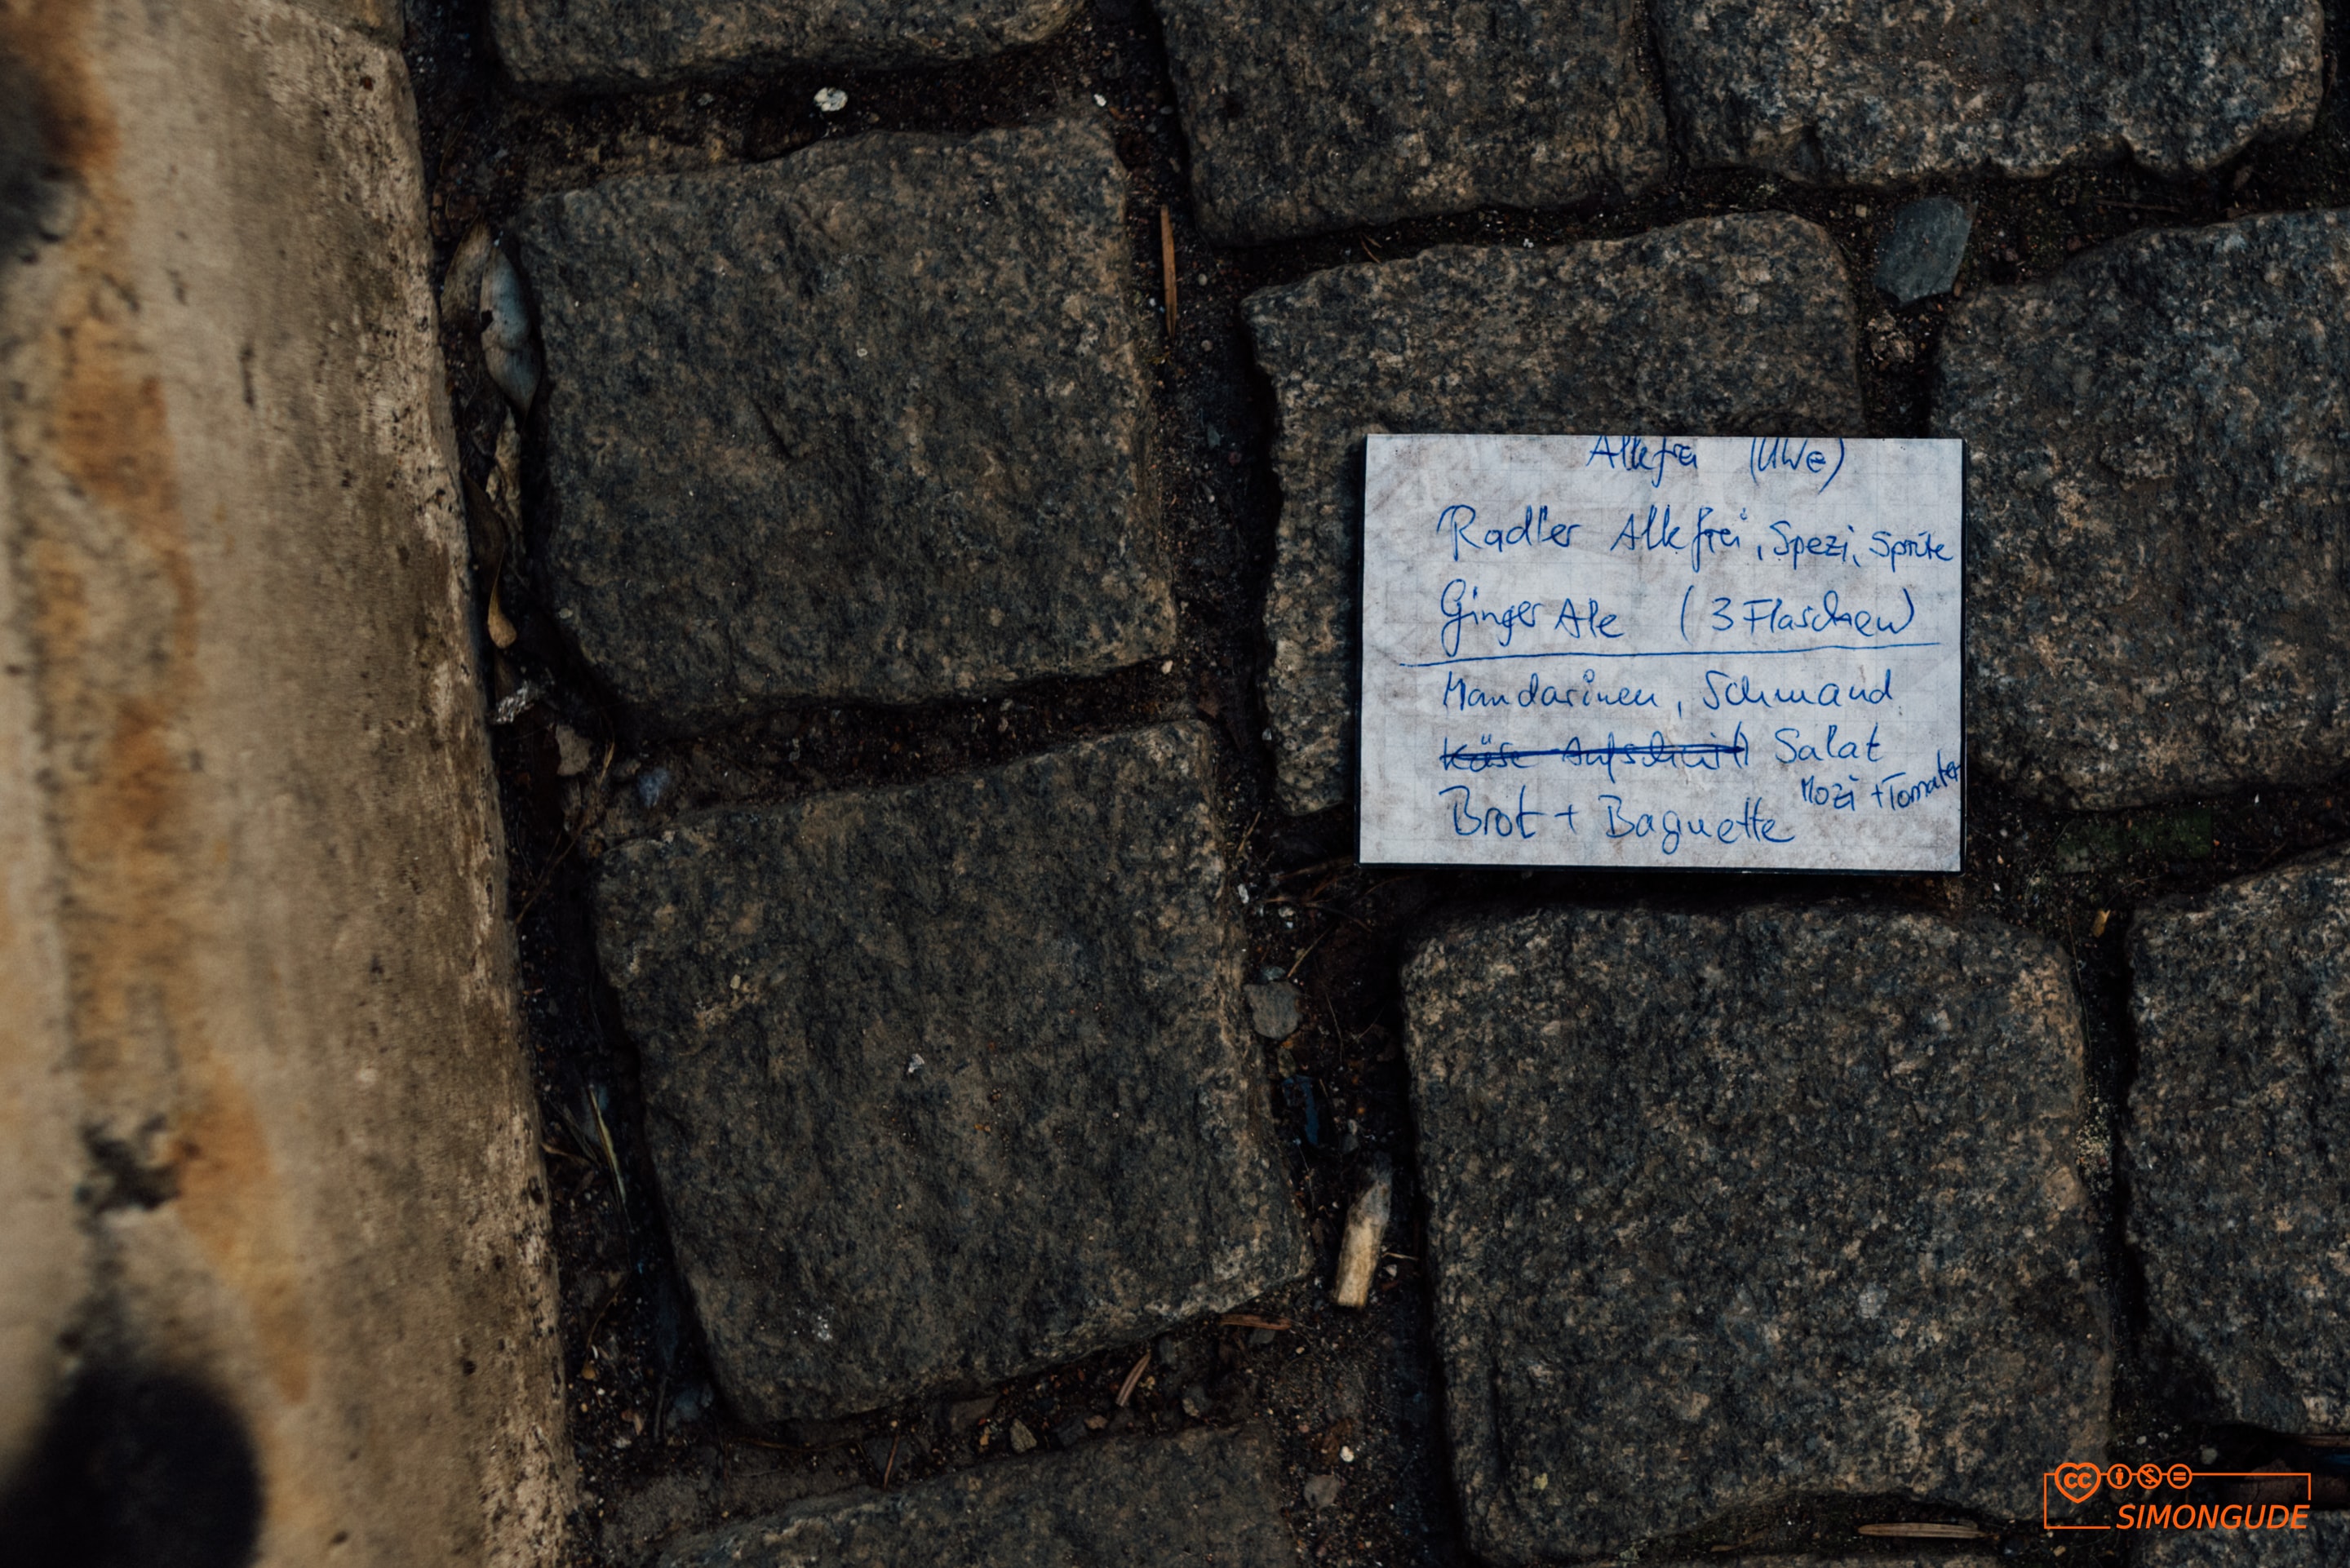 Alkfrei (UWE)
Radler Alkfrei, Spezi, Sprite
Ginger Ale (3 Flaschen)
Mandarinen, Schmand
Käse Aufschnitt Salat
Mozi + Tomaten
Brot + Baguette
SIMONGUDE